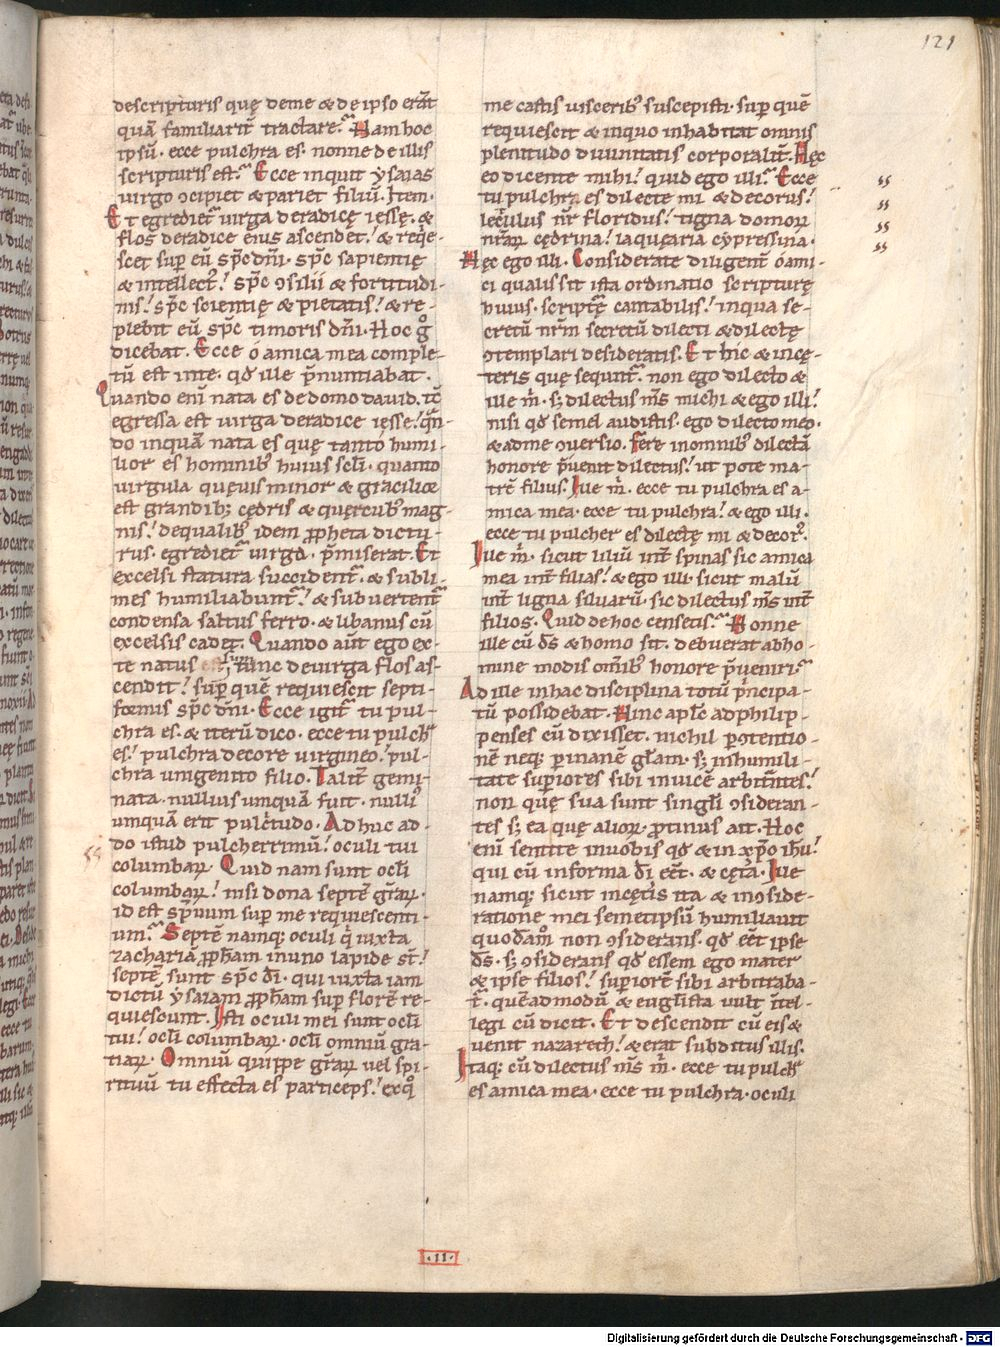 121
descripturis quę deme & deipso erāt
quā familiarit̄ tractare. Nam hoc
ipsū. ecce pulchra es. nonne de illis
scripturis est. Ecce inquit ysaias
virgo ↄcipiet & pariet filiū. Item.
Et egrediet᷑ virga deradicę iessę. &
flos deradice eius ascendet. & req̇e-
scet sup eū sp̄c dn̄i. sp̄c sapientię
& intellect᷒. sp̄c ↄsilii & fortitudi-
nis. sp̄c scientię & pietatis. & re-
plebit eū sp̄c timoris dn̄i. Hoc gͦ
dicebat. Ecce ó amica mea comple-
tū est inte. qd̄ ille p̄nuntiabat.
Quando eni nata es dedomo dauid. tc̄
egressa est uirga deradice iesse. q̄n-
do inquā nata es quę tanto humi-
lior es hominib; huius scl̄i. quanto
uirgula quęuis minor & gracilior
est grandib; cędris & quercub; mag-
nis. dequalib; idem ppheta dictu-
rus. egrediet᷑ uirga. p̄miserat. Et
excelsi statura succident᷑. & subli-
mes humiliabunt᷑. & subuertent᷑
condensa saltus ferro. & libanus cū
excelsis cadet. Quando aūt ego ex-
te natus sū tunc deuirga flos as-
cendit. sup quē requiescit septi-
formis sp̄c dn̄i. Ecce igit᷑ tu pul-
chra es. & iterū dico. ecce tu pulch᷑
es. pulchra decore uirgineo. pul-
chra unigenito filio. Talit̄ gemi-
nata. nullius umquā fuit. nulli᷒
umquā erit pulc̄tudo. Ad huc ad-
do istud pulcherrimū. oculi tui
columbaꝝ. Quid nam sunt ocl̄i
columbaꝝ. nisi dona septē gr̄aꝝ.
id est sp̄ituum sup me requiescenti-
um. Septē namq; oculi q̇ iuxta
zachariā pph̄am inuno lapide st̄.
septē sunt sp̄c dī. qui iuxta iam
dictū ysaiam pph̄am sup florē re-
quiescunt. Isti oculi mei sunt ocl̄i
tui. ocl̄i columbaꝝ. ocl̄i omniū gra-
tiaꝝ. Omniū quippe gr̄aꝝ uel spi-
rituū tu effecta es particeps. exqͦ
me castis uisceribꝰ suscepisti. sup quē
requiescit & inquo inhabitat omnis
plenitudo diuinitatis corporalit̄. Hęc
eo dicente mihi. quid ego illi. Ecce
tu pulchra es dilecte mi & decorus.
lect̄ulus nr̄ floridus. tigna domoꝝ
nr̄aꝝ cędrina. laquęaria cypressina.
Hęc ego illi. Considerate diligent̄ ó ami-
ci qualis sit ista ordinatio scripturę
huius. scriptrę cantabilis. inqua se-
cretū nr̄m secretū dilecti & dilectę
ↄtemplari desideratis. Et hic & incę-
teris quę sequnt᷑. non ego dilecto &
ille m̄. s; dilectus m̄s michi & ego illi.
nisi qd̄ semel audistis. ego dilecto meo.
& adme ↄuersio. Fere inomnib; dilectā
honore p̄uenit dilectus. ut pote ma-
trē filius. Ille m̄. ecce tu pulchra es a-
mica mea. ecce tu pulchra. & ego illi.
ecce tu pulcher es dilectę mi & decor᷒.
Ille m̄. sicut liliū int̄ spinas sic amica
mea int̄ filias. & ego illi. sicut malū
int̄ ligna siluarū. sic dilectus m̄s int̄
filios. Quid de hoc censetis. Nonne
ille cū dš & homo sit. debuerat abho-
mine modis om̄ibꝰ honore p̄ueniri.
Ad ille inhac disciplina totū p̄ncipa-
tū possidebat. Hinc apl̄c ad philip-
penses cū dixisset. nichil p ↄtentio-
nē neq; p inanē gl̄am. s; inhumili-
tate superiores sibi inuicē arbitrītes.
non quę sua sunt singl̄i ↄsideran-
tes s; ea quę alioꝝ. protinus ait. Hoc
eni sentite inuobis qd̄ & in xp̄o ih̄u.
qui cū informa dī eēt. & cęt̄a. Ille
namq; sicut incęt̄is ita & inↄside-
ratione mei semetipsū humiliauit
quodāmͦ non ↄsiderans. qd̄ eēt ipse
dš. s; ↄsiderans qd̄ essem ego mater
& ipse filios. superiorē sibi arbitraba-
t᷑. quēadmodū & euglista uult intel-
legi cū dicit. Et descendit cū eis &
uenit nazareth. & erat subditus illis.
Itaq; cū dilectus m̄s m̄. ecce tu pulch᷑
es amica mea. ecce tu pulchra. oculi
.11.
Digitalisierung gefördert durch die Deutsche Forschungsgemeinschaft - DFG